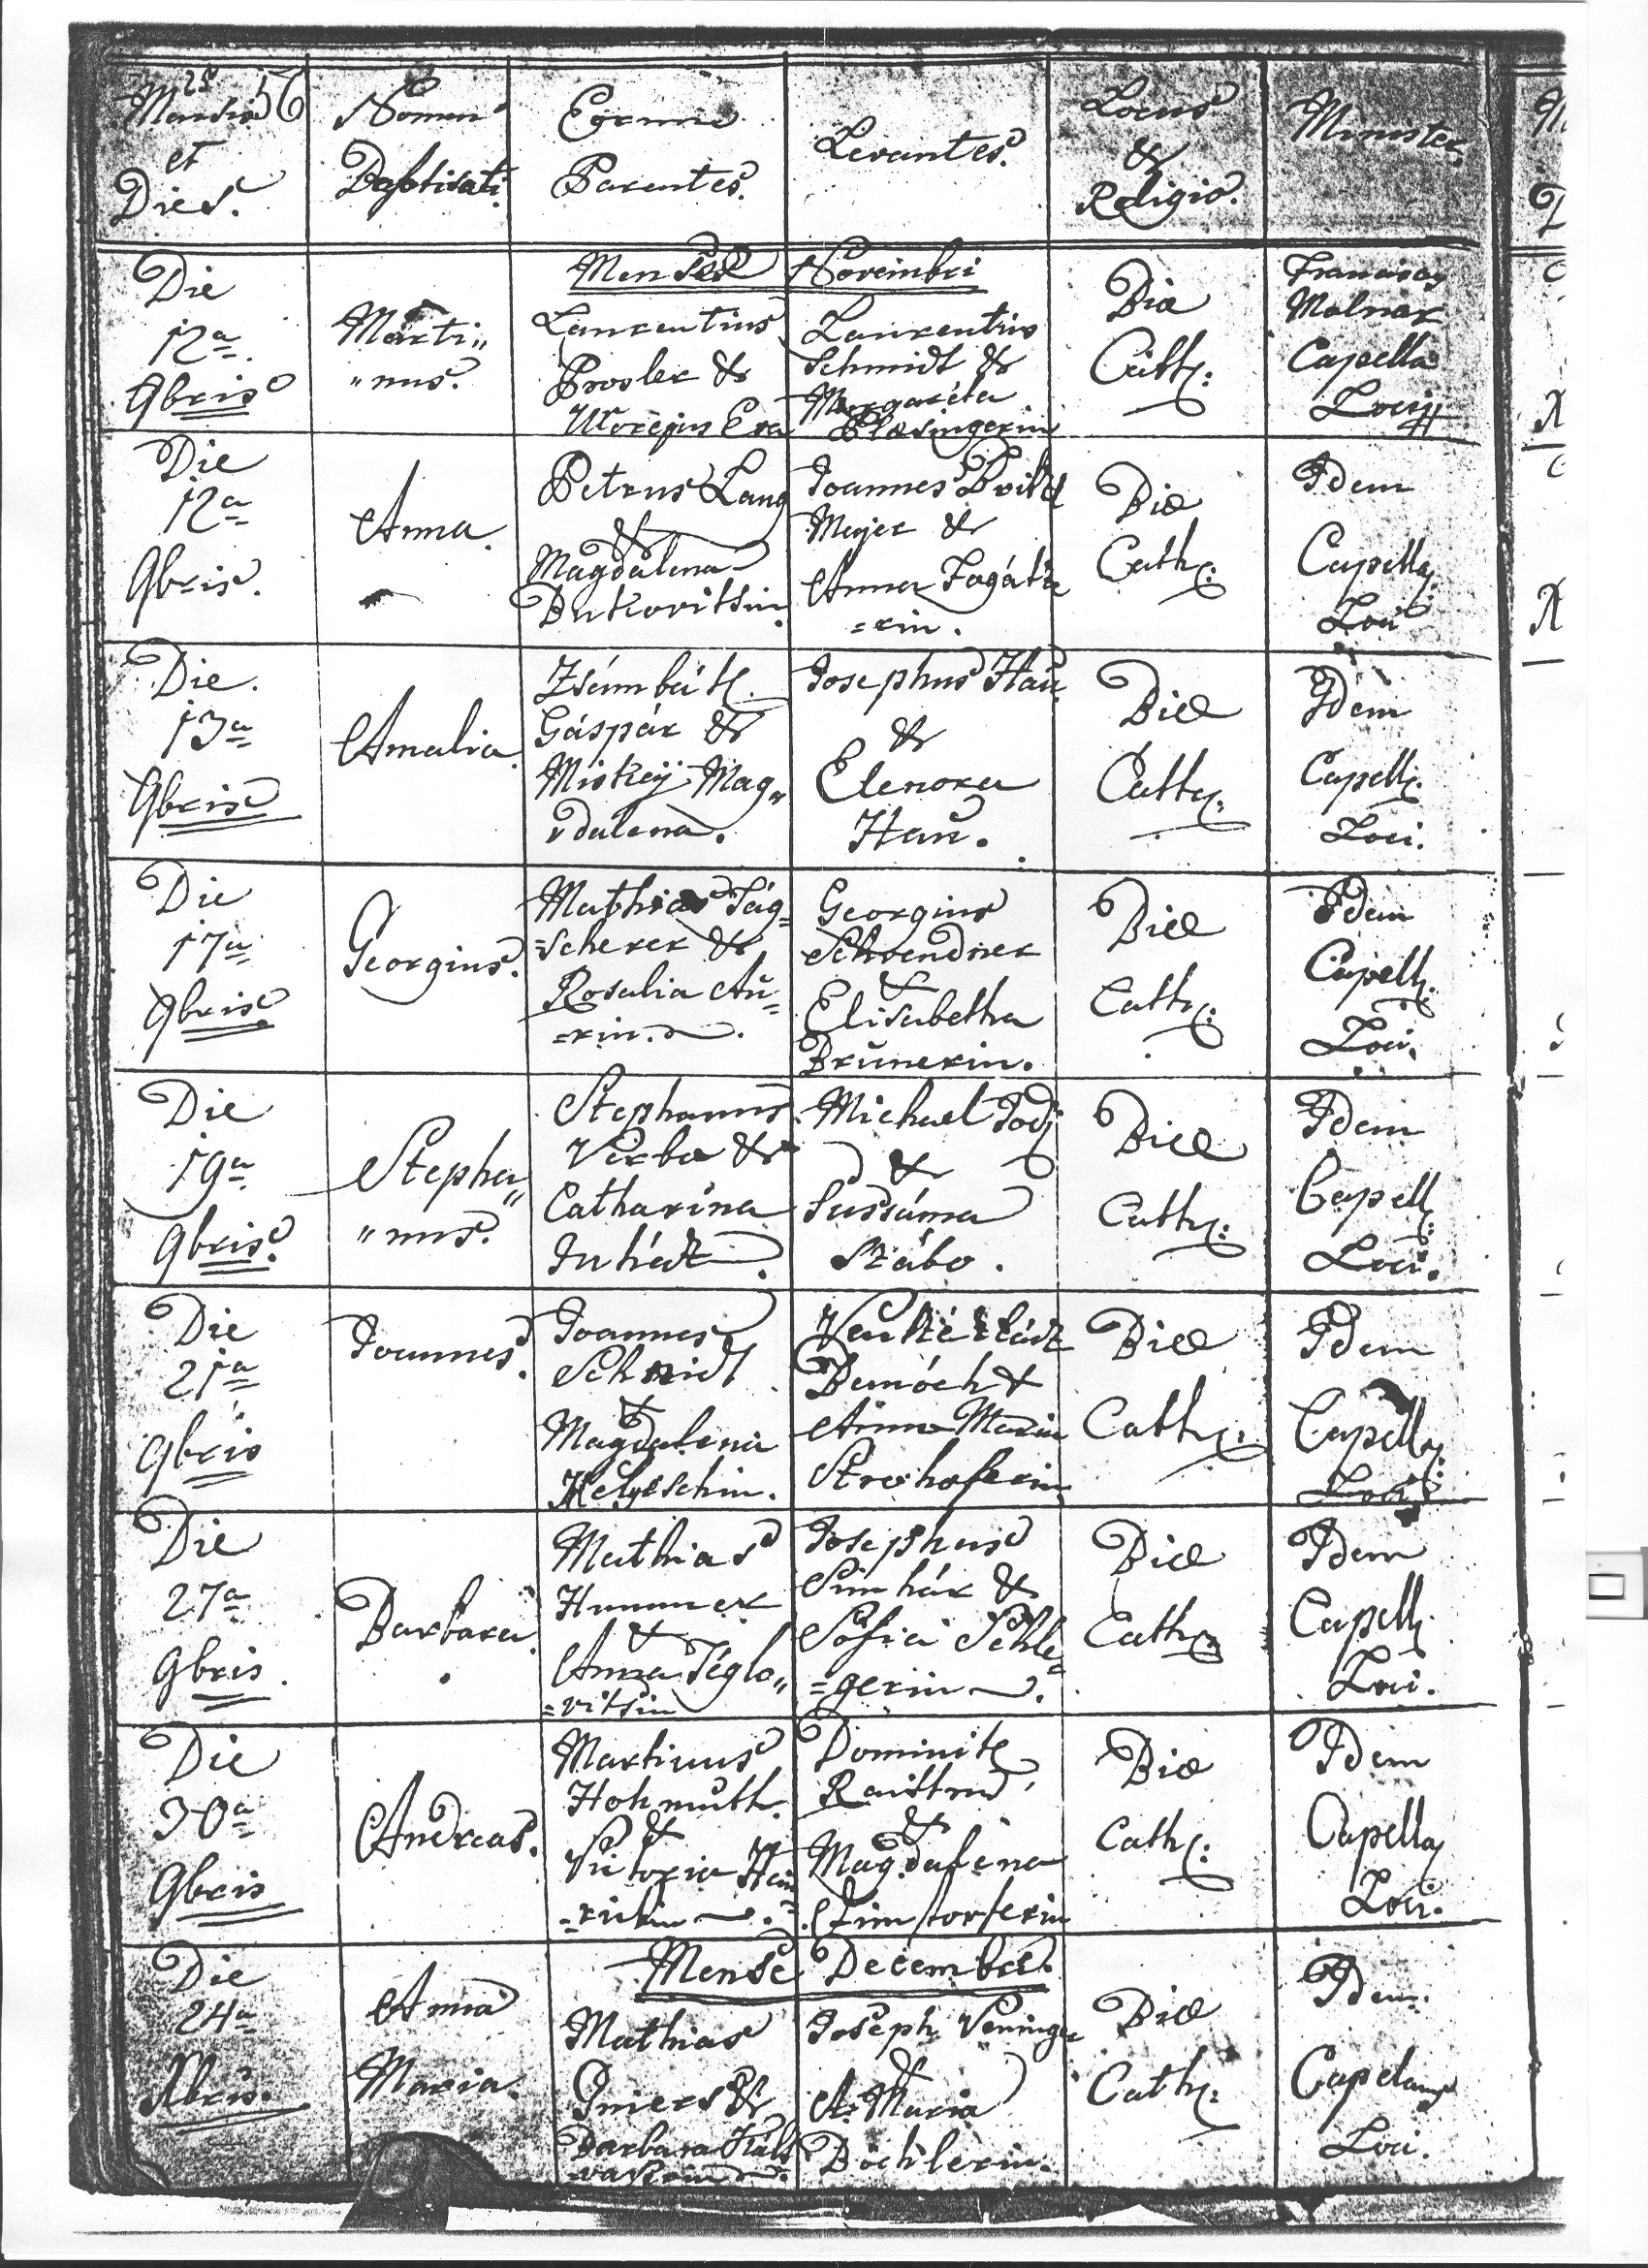 Mensis 56
et
Dies.
Nomen
Baptisati.
Eorum
Parentes.
Levantes.
Locus
&
Religio.
Minister
Mense Novembri
Die
12a
9bris
Marti„
„nus.
Laurentius
Prosler &
Uxor ejus Eva
Laurentius
Schmidt &
Margaréta
Biæ
Cath:
Franciscus
Molnár
Capella
Loci
Die
12a
9bris.
Anna.
Petrus Lang
&
Magdalena
Butkovitsin.
Joannes
Mayer &
Anna
=rin.
Biæ
Cath:
Idem
Capella
Loci
Die.
13a
9bris
Amalia.
Gáspár &
Miskeÿ Mag„
„dalena.
Josephus Haũ
&
Elenora
Haũ.
Biæ
Cath:
Idem
Capell:
Loci.
Die
17a
9bris
Georgius.
Mathias Tág=
=scherer &
Rosalia Aũ=
=rin.
Georgius
Schvendner
&
Elisabetha
Brũnerin.
Biæ
Cath:
Idem
Capell:
Loci.
Die
19a
9bris.
Stepha„
„nus.
Stephanus
Verba &
Catharina
Juhász.
Michael
&
Susána
Szábo.
Biæ
Cath:
Idem
Capell:
Loci.
Die
21a
9bris
Joannes.
Joannes
Schmidt
&
Magdalena
Anna Maria
Strohoferin.
Biæ
Cath:
Idem
Capell:
Loci
Die
27a
9bris.
Barbara.
Mathias
Hummer
&
Anna Téglo„
=vitsin
Josephus
Simhár &
Sofia Schle=
=gerin.
Biæ
Cath:
Idem
Capell:
Loci.
Die
30a
9bris
Andreas.
Martinus
Hohmuth
&
Victoria
Dominik
&
Magdalena
Biæ
Cath:
Idem
Capella
Loci.
Mense Decembri.
Die
24a
Xbris.
Anna
Maria.
Mathias
Barbara
Joseph Veninger
&
A. Maria
Böchlerin.
Biæ
Cath:
Idem
Capelanus
Loci.